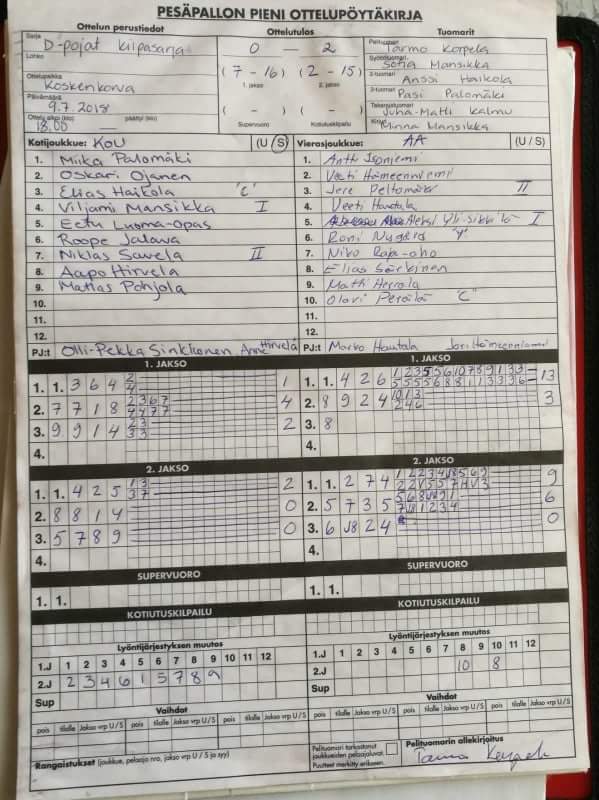 PESÄPALLON PIENI OTTELUPÖYTÄKIRJA
Ottelun perustiedot Ottelutulos Tuomarit
Sarja D-pojat kilpasarja 0 — 2 Pelituomari Tarmo Korpela
Lohko (7 - 16) (2 - 15) Syöttötuomari Sofia Mansikka
1. jakso 2. jakso 2-tuomari Anssi Haikola
Ottelupaikka Koskenkorva 3-tuomari Pasi Palomäki
Päivämäärä 9.7.2018 ( - ) ( - ) Takarajatuomari Juha-Matti Kalmu
Ottelu alkoi (klo) 18.00 päättyi (klo) — Supervuoro Kotiutuskilpailu Kirjuri Minna Mansikka
Kotijoukkue: KoU (U / S) Vierasjoukkue: AA (U / S)
1. Miika Palomäki 1. Antti Isoniemi
2. Oskari Ojanen 2. Veeti Hämeenniemi
3. Elias Haikola "C" 3. Jere Peltomäki II
4. Viljami Mansikka I 4. Veeti Hautala
5. Eetu Luoma-opas 5. Aleksi Yli-Sikkilä I
6. Roope Jalava 6. Roni "Y"
7. Niklas Savela II 7. Niko Raja-aho
8. Aapo Hirvelä 8. Elias Särkinen
9. Matias Pohjola 9. Matti Herrala
10. 10. Olavi Perälä "C"
11. 11.
12. 12.
PJ:t Olli-Pekka Sinkkonen Anne Hirvelä PJ:t Marko Hautala Jari Hämeenniemi
1. JAKSO 1. JAKSO
1. 1. 3 6 4 1 1. 1. 4 2 6 13
2. 7 7 1 8 4 2. 8 9 2 4 3
3. 9 9 1 4 2 3. 8
4. 4.
2. JAKSO 2. JAKSO
1. 1. 4 2 5 2 1. 1. 2 7 4 9
2. 8 8 1 4 0 2. 5 7 3 5 6
3. 5 7 8 9 0 3. 6 J8 2 4 0
4. 4.
SUPERVUORO SUPERVUORO
1. 1. 1. 1.
KOTIUTUSKILPAILU KOTIUTUSKILPAILU
Lyöntijärjestyksen muutos Lyöntijärjestyksen muutos
1.J 1 2 3 4 5 6 7 8 9 10 11 12 1.J 1 2 3 4 5 6 7 8 9 10 11 12
2.J 2 3 4 6 1 5 7 8 9 2.J 10 8
Sup Sup
Vaihdot Vaihdot
pois tilalle Jakso vrp U / S pois tilalle Jakso vrp U / S pois tilalle Jakso vrp U / S pois tilalle Jakso vrp U / S
Rangaistukset (joukkue, pelaaja nro, jakso vrp U / S ja syy) Pelituomari tarkastanut joukkueiden pelaajaluvat. Puutteet merkitty erikseen. Pelituomarin allekirjoitus